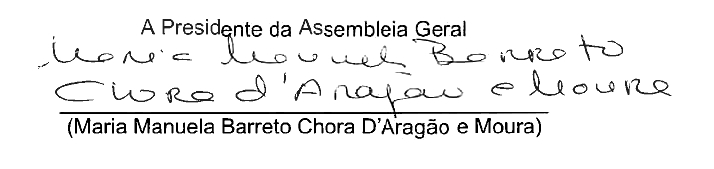 A Presidente da Assembleia Geral
Maria Manuela Barreto
Chora d'Aragão e Moura
(Maria Manuela Barreto Chora D'Aragão e Moura)